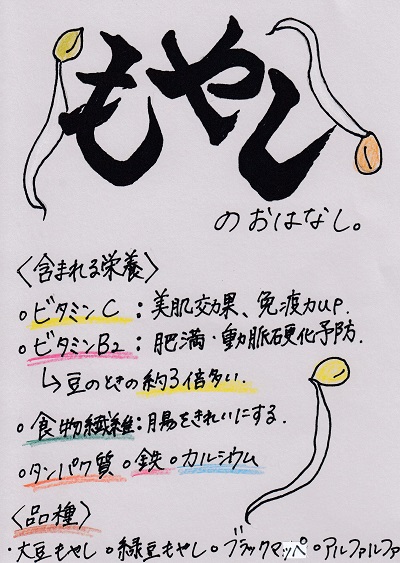 もやし
のおはなし。
〈含まれる栄養〉
○ビタミンC:美肌効果、免疫力up.
○ビタミンB2:肥満・動脈硬化予防.
↳豆のときの約3倍多い.
○食物繊維:腸をきれいにする.
○タンパク質 ○鉄 ○カルシウム
〈品種〉
・大豆もやし ○緑豆もやし ○ブラックマッペ ○アルファルファ